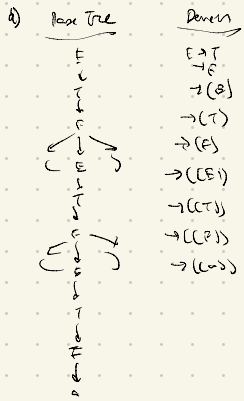 d) Parse Tree
E
T
F
( E )
T
F
( E )
T
F
a
Deriven
E → T
→ F
→ (E)
→ (T)
→ (F)
→ ((E))
→ ((T))
→ ((F))
→ ((a))